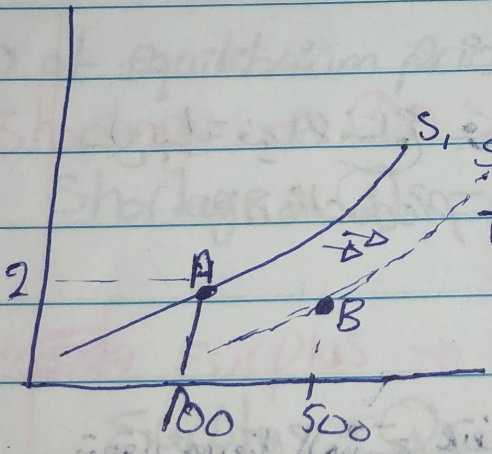 S₁
S
A
2
B
100
500